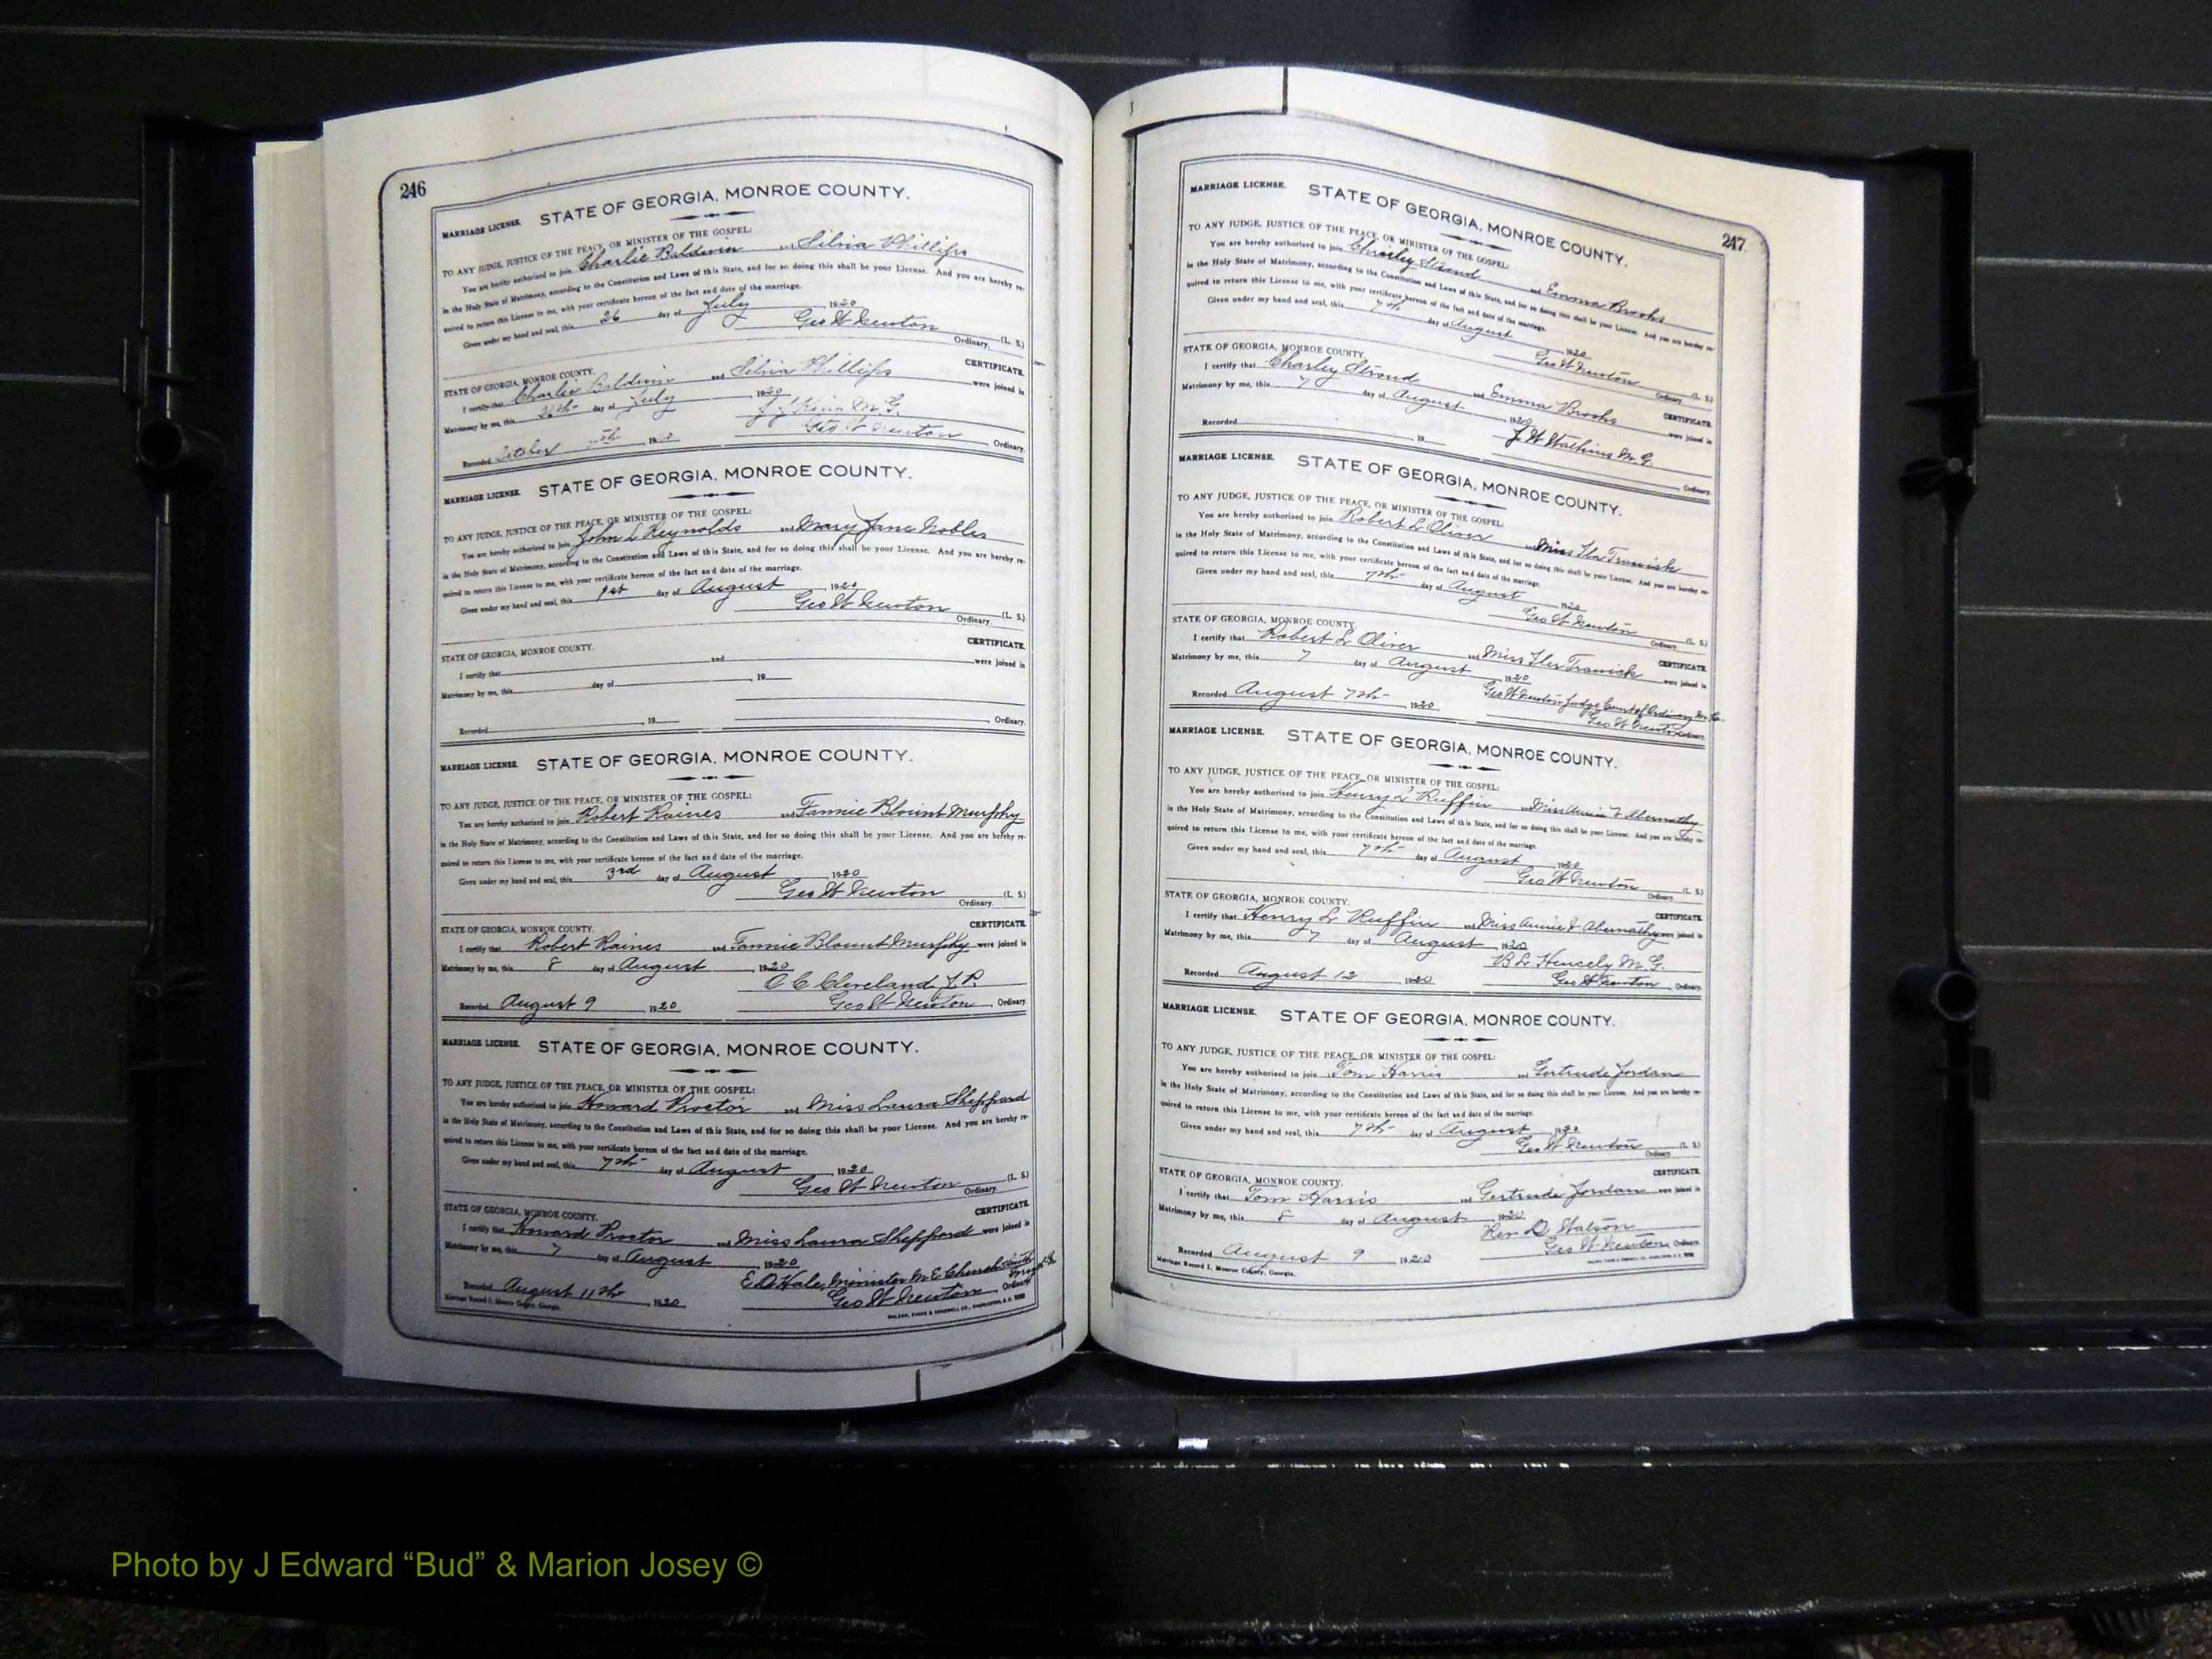 246
MARRIAGE LICENSE. STATE OF GEORGIA, MONROE COUNTY.
TO ANY JUDGE, JUSTICE OF THE PEACE, OR MINISTER OF THE GOSPEL:
You are hereby authorized to join Charlie Baldwin and Silvia Phillips
in the Holy State of Matrimony, according to the Constitution and Laws of this State, and for so doing this shall be your License. And you are hereby re-
quired to return this License to me, with your certificate hereon of the fact and date of the marriage.
Given under my hand and seal, this 26 day of July 1920
Geo W Newton (L. S.)
Ordinary.
STATE OF GEORGIA, MONROE COUNTY. CERTIFICATE.
I certify that Charlie Baldwin and Silvia Phillips were joined in
Matrimony by me, this day of July 1920
M. G.
Recorded October 19 Geo W Newton Ordinary.
MARRIAGE LICENSE. STATE OF GEORGIA, MONROE COUNTY.
TO ANY JUDGE, JUSTICE OF THE PEACE, OR MINISTER OF THE GOSPEL:
You are hereby authorized to join John L Reynolds and Mary Jane Nobles
in the Holy State of Matrimony, according to the Constitution and Laws of this State, and for so doing this shall be your License. And you are hereby re-
quired to return this License to me, with your certificate hereon of the fact and date of the marriage.
Given under my hand and seal, this 1st day of August 1920
Geo W Newton (L. S.)
Ordinary.
STATE OF GEORGIA, MONROE COUNTY. CERTIFICATE.
I certify that and were joined in
Matrimony by me, this day of , 19
Recorded , 19 Ordinary.
MARRIAGE LICENSE. STATE OF GEORGIA, MONROE COUNTY.
TO ANY JUDGE, JUSTICE OF THE PEACE, OR MINISTER OF THE GOSPEL:
You are hereby authorized to join Robert Raines and Fannie Blount Murphy
in the Holy State of Matrimony, according to the Constitution and Laws of this State, and for so doing this shall be your License. And you are hereby re-
quired to return this License to me, with your certificate hereon of the fact and date of the marriage.
Given under my hand and seal, this 3rd day of August , 1920
Geo W Newton (L. S.)
Ordinary.
STATE OF GEORGIA, MONROE COUNTY. CERTIFICATE.
I certify that Robert Raines and Fannie Blount Murphy were joined in
Matrimony by me, this 8 day of August , 1920
C C Cleveland J. P.
Recorded August 9 , 1920 Geo W Newton , Ordinary.
MARRIAGE LICENSE. STATE OF GEORGIA, MONROE COUNTY.
TO ANY JUDGE, JUSTICE OF THE PEACE, OR MINISTER OF THE GOSPEL:
You are hereby authorized to join Howard Proctor and Miss Laura Sheppard
in the Holy State of Matrimony, according to the Constitution and Laws of this State, and for so doing this shall be your License. And you are hereby re-
quired to return this License to me, with your certificate hereon of the fact and date of the marriage.
Given under my hand and seal, this 7th day of August , 1920
Geo W Newton (L. S.)
Ordinary.
STATE OF GEORGIA, MONROE COUNTY. CERTIFICATE.
I certify that Howard Proctor and Miss Laura Sheppard were joined in
Matrimony by me, this 7 day of August , 1920
E. D. Hale, Minister M E Church South
Recorded August 11th , 1920 Geo W Newton , Ordinary.
Marriage Record I, Monroe County, Georgia.
247
MARRIAGE LICENSE. STATE OF GEORGIA, MONROE COUNTY.
TO ANY JUDGE, JUSTICE OF THE PEACE, OR MINISTER OF THE GOSPEL:
You are hereby authorized to join Charley Stroud and Emma Brooks
in the Holy State of Matrimony, according to the Constitution and Laws of this State, and for so doing this shall be your License. And you are hereby re-
quired to return this License to me, with your certificate hereon of the fact and date of the marriage.
Given under my hand and seal, this 7th day of August , 1920
Geo W Newton (L. S.)
Ordinary.
STATE OF GEORGIA, MONROE COUNTY. CERTIFICATE.
I certify that Charley Stroud and Emma Brooks were joined in
Matrimony by me, this 7 day of August 1920
J W Watkins M. G.
Recorded , 19 Ordinary.
MARRIAGE LICENSE. STATE OF GEORGIA, MONROE COUNTY.
TO ANY JUDGE, JUSTICE OF THE PEACE, OR MINISTER OF THE GOSPEL:
You are hereby authorized to join Robert L Oliver and Miss Trawick
in the Holy State of Matrimony, according to the Constitution and Laws of this State, and for so doing this shall be your License. And you are hereby re-
quired to return this License to me, with your certificate hereon of the fact and date of the marriage.
Given under my hand and seal, this 7th day of August 1920
Geo W Newton (L. S.)
Ordinary.
STATE OF GEORGIA, MONROE COUNTY. CERTIFICATE.
I certify that Robert L Oliver and Miss Trawick were joined in
Matrimony by me, this 7 day of August , 1920
Geo W Newton Judge Court of Ordinary M. C.
Recorded August 7th 1920 Geo W Newton Ordinary.
MARRIAGE LICENSE. STATE OF GEORGIA, MONROE COUNTY.
TO ANY JUDGE, JUSTICE OF THE PEACE, OR MINISTER OF THE GOSPEL:
You are hereby authorized to join Henry L Ruffin and Miss Annie F Abernathy
in the Holy State of Matrimony, according to the Constitution and Laws of this State, and for so doing this shall be your License. And you are hereby re-
quired to return this License to me, with your certificate hereon of the fact and date of the marriage.
Given under my hand and seal, this 7th day of August , 1920
Geo W Newton (L. S.)
Ordinary.
STATE OF GEORGIA, MONROE COUNTY. CERTIFICATE.
I certify that Henry L Ruffin and Miss Annie F Abernathy were joined in
Matrimony by me, this 7 day of August , 1920
B L Hencely M. G.
Recorded August 12 1920 Geo W Newton , Ordinary.
MARRIAGE LICENSE. STATE OF GEORGIA, MONROE COUNTY.
TO ANY JUDGE, JUSTICE OF THE PEACE, OR MINISTER OF THE GOSPEL:
You are hereby authorized to join Tom Harris and Gertrude Jordan
in the Holy State of Matrimony, according to the Constitution and Laws of this State, and for so doing this shall be your License. And you are hereby re-
quired to return this License to me, with your certificate hereon of the fact and date of the marriage.
Given under my hand and seal, this 7th day of August , 1920
Geo W Newton (L. S.)
Ordinary.
STATE OF GEORGIA, MONROE COUNTY. CERTIFICATE.
I certify that Tom Harris and Gertrude Jordan were joined in
Matrimony by me, this 8 day of August 1920
Rev. D. Watson
Recorded August 9 , 1920 Geo W Newton , Ordinary.
Marriage Record I, Monroe County, Georgia.
Photo by J Edward “Bud” & Marion Josey ©